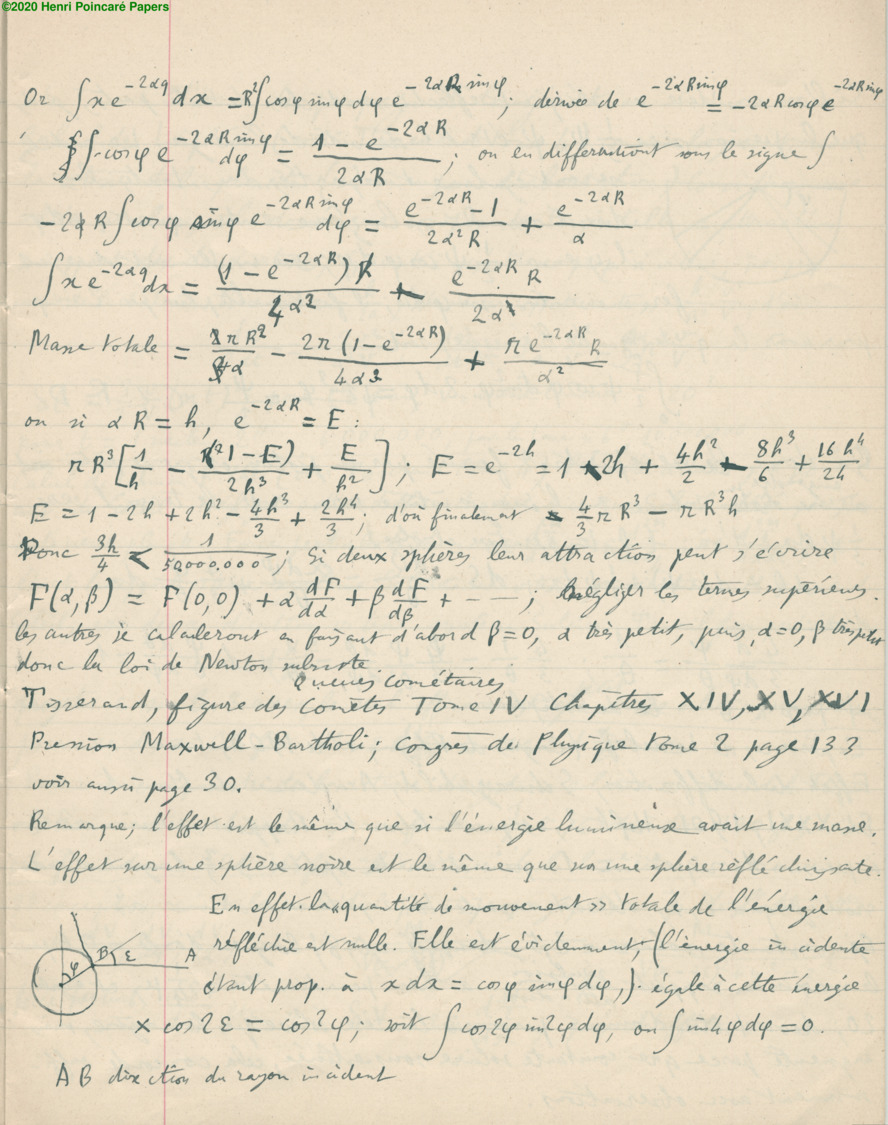 ©2020 Henri Poincaré Papers
Or ∫ x e^{-2αq} dx = R² ∫ cos φ sin φ dφ e^{-2αR sin φ} ; dérivée de e^{-2αR sin φ} = -2αR cos φ e^{-2αR sin φ}
∫ cos φ e^{-2αR sin φ} dφ = (1 - e^{-2αR}) / 2αR ; ou en différentiant sous le signe ∫
-2αR ∫ cos φ sin φ e^{-2αR sin φ} dφ = (e^{-2αR} - 1) / 2α²R + e^{-2αR} / α
∫ x e^{-2αq} dx = (1 - e^{-2αR}) / 4α² - e^{-2αR} R / 2α
Masse totale = πR² / α - 2π (1 - e^{-2αR}) / 4α³ + π e^{-2αR} R / α²
ou si αR = h, e^{-2αR} = E :
πR³ [ 1/h - (1 - E) / 2h³ + E / h² ] ; E = e^{-2h} = 1 - 2h + 4h²/2 - 8h³/6 + 16h⁴/24
E = 1 - 2h + 2h² - 4h³/3 + 2h⁴/3 ; d'où finalement 4/3 πR³ - πR³h
Donc 3h/4 < 1/50000.000 ; Si deux sphères leur attraction peut s'écrire
F(α,β) = F(0,0) + α dF/dα + β dF/dβ + - — ; négliger les termes supérieurs.
les autres se calculeront en faisant d'abord β=0, α très petit, puis, α=0, β très petit
donc la loi de Newton subsiste.
queues cométaires
Tisserand, figure des Comètes Tome IV Chapitres XIV, XV, XVI
Pression Maxwell-Bartholi ; Congrès de Physique tome 2 page 133
voir aussi page 30.
Remarque ; l'effet est le même que si l'énergie lumineuse avait une masse.
L'effet sur une sphère noire est le même que sur une sphère réfléchissante.
En effet la «quantité de mouvement» totale de l'énergie
réfléchie est nulle. Elle est évidemment, (l'énergie incidente
étant prop. à x dx = cos φ sin φ dφ,) égale à cette énergie
× cos 2ε = cos 2φ ; soit ∫ cos 2φ sin 2φ dφ, ou ∫ sin 4φ dφ = 0.
φ B ε A
AB direction du rayon incident